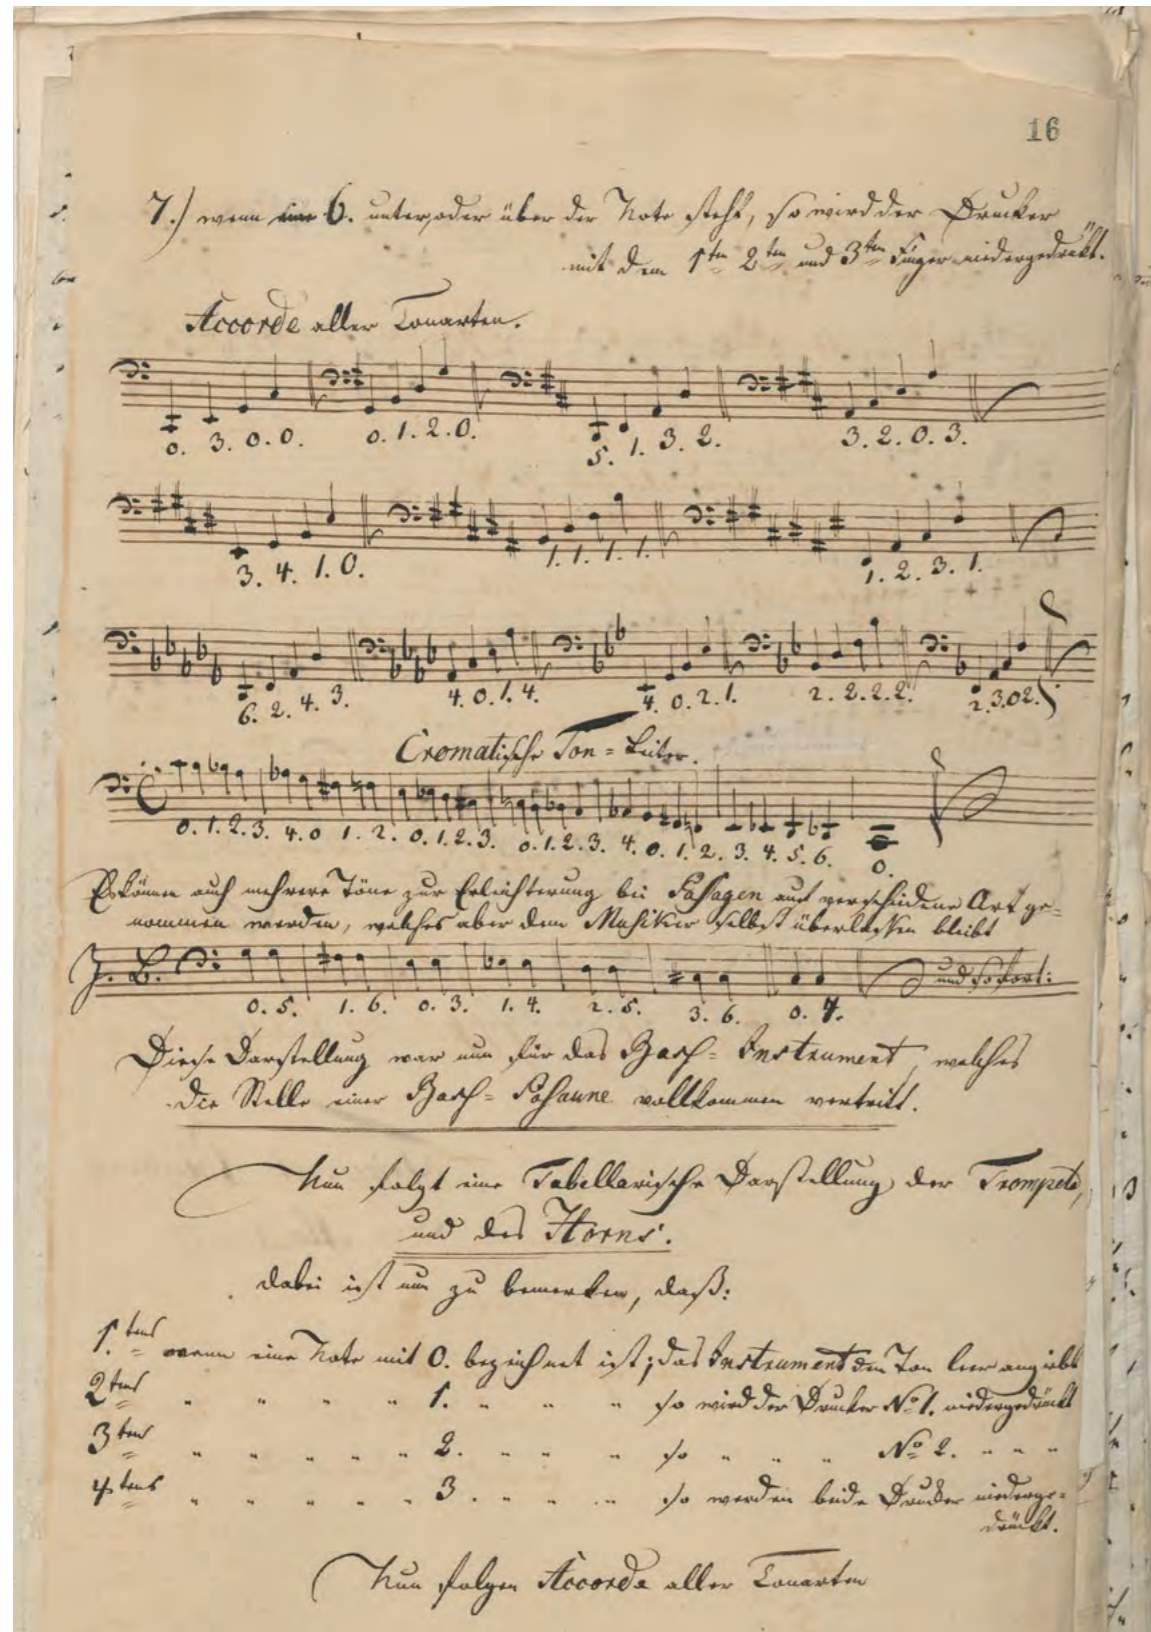 16
7.) wenn eine 6. unter, oder über der Note steht, so wird der Drucker
mit dem 1ten 2ten und 3ten Finger niedergedrükt.
Accorde aller Tonarten.
0. 3. 0. 0. 0. 1. 2. 0. 5. 1. 3. 2. 3. 2. 0. 3.
3. 4. 1. 0. 1. 1. 1. 1. 1. 2. 3. 1.
6. 2. 4. 3. 4. 0. 1. 4. 4. 0. 2. 1. 2. 2. 2. 2. 2. 3. 0 2.
Cromatische Ton=Leiter.
0. 1. 2. 3. 4. 0 1. 2. 0. 1. 2. 3. 0. 1. 2. 3. 4. 0. 1. 2. 3. 4. 5. 6. 0.
Es können auch mehrere Töne zur Erleichterung bei Passagen auf verschiedene Art ge=
nommen werden, welches aber dem Musiker selbst überlassen bleibt
Z. B. und so fort:
0. 5. 1. 6. 0. 3. 1. 4. 2. 5. 3. 6. 0. 4.
Diese Darstellung war nun für das Bass=Instrument, welches
die Stelle einer Bass=Posaune vollkommen vertritt.
Nun folgt eine Tabellarische Darstellung der Trompete,
und des Horns.
dabei ist nun zu bemerken, daß:
1.tens wenn eine Note mit 0. bezeichnet ist; das Instrument den Ton leer angiebt
2tens " " " " 1. " " " so wird der Drucker No 1. niedergedrückt
3tens " " " " " 2. " " " so " " " No 2. " " "
4tens " " " " " 3. " " " so werden beide Drucker niederge=
drückt.
Nun folgen Accorde aller Tonarten